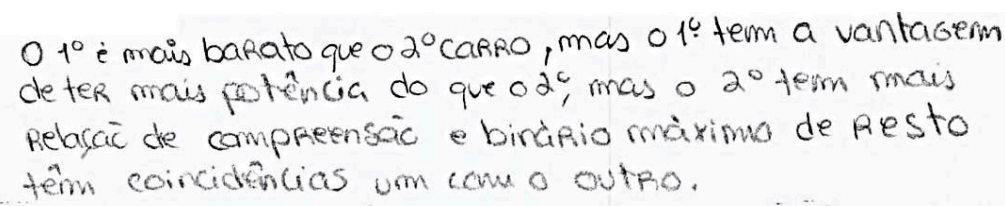 O 1º é mais baRato que o 2º CARRO, mas o 1º tem a vantagem
de teR mais potência do que o 2º, mas o 2º tem mais
Relação de compReensão e bináRio máximo de Resto
têm coincidências um com o outRo.